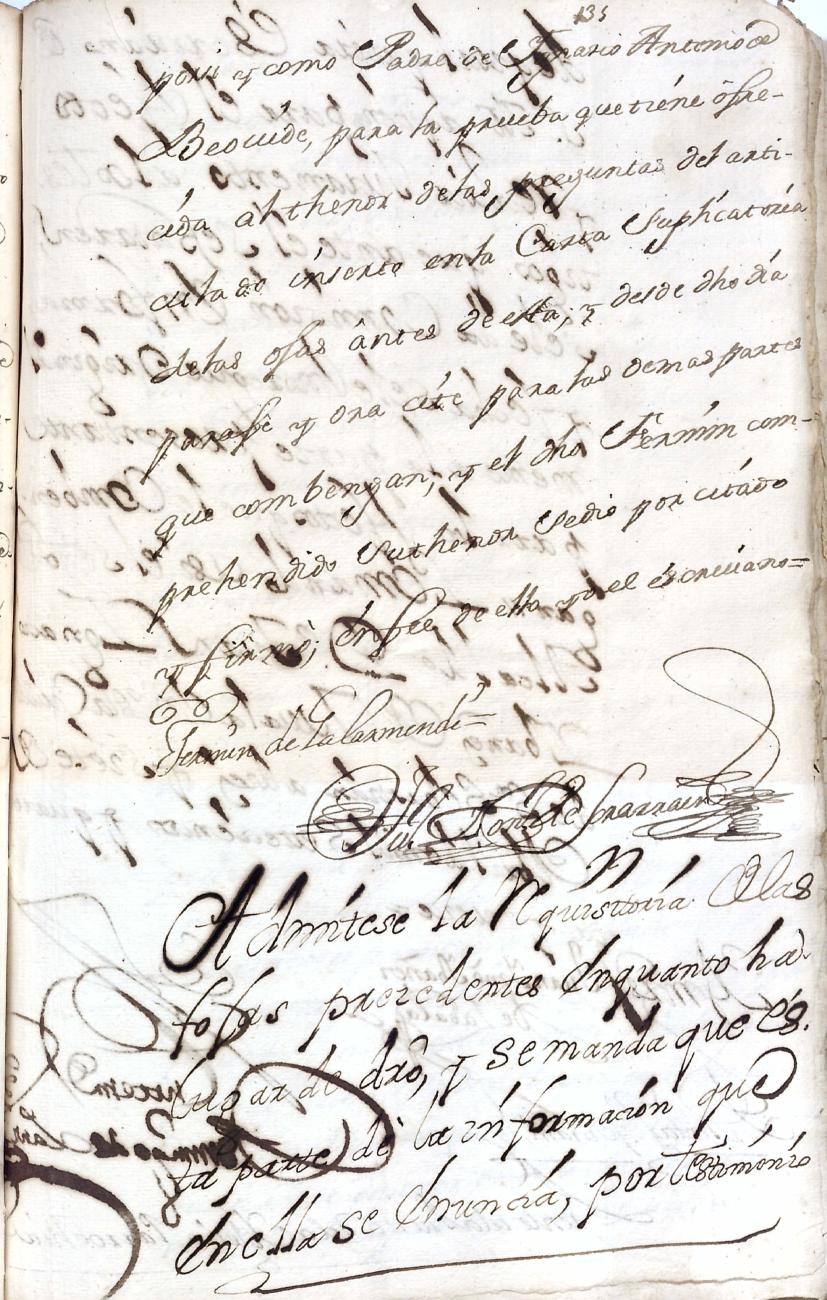 135
porsi y como Padre de Ignacio Antonio de
Beovide, para la prueba que tiene ofre-
cida al thenor de las preguntas del arti-
culado inserto en la Carta Suplicatoria
de las ojas antes de esta, y desde dho día
para fe y ora cite para las demas partes
que combengan, y el dho Fermin com-
prehendido su thenor se dio por citado
y firmó, en feé de ello yo el escrivano=
Fermin de Lalarmendi=
Admitese la Requisitoria De las
fojas precedentes Enquanto ha
lugar de dro, y se manda que és.
ta parte dè la informacion que
En ella se Enuncia, por testimonio